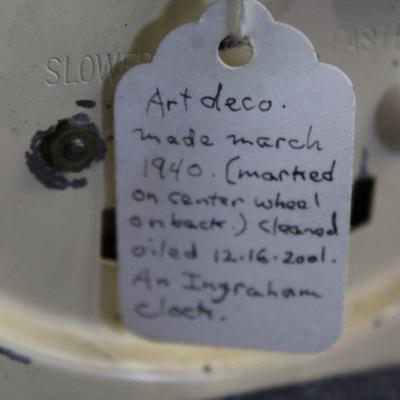 SLOWER FASTE
Art deco.
made march
1940. (marked
on center wheel
on back.) cleaned
oiled 12.16.2001.
An Ingraham
clock.